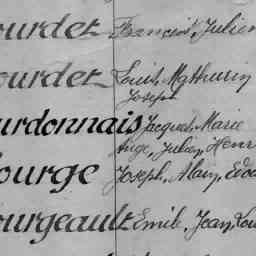 ourdet Francois, Julien
ourdet Louis, Mathurin
Joseph
urdonnais Jacques, Marie
Ange, Julien, Henr
ourge Joseph, Alain, Edou
ourgeault Emile, Jean, Lou